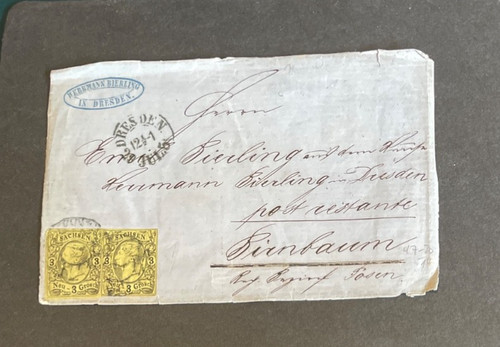 HERRMANN BIERLING
IN DRESDEN.
DRESDEN
12½-1
JUL
Herrn
Emil Bierling aus dem Hause
Herrmann Bierling in Dresden
post restante
Birnbaum
Reg Bezirk Posen
SACHSEN
3 3
Neu-3 Grosch
SACHSEN
3 3
Neu-3 Grosch